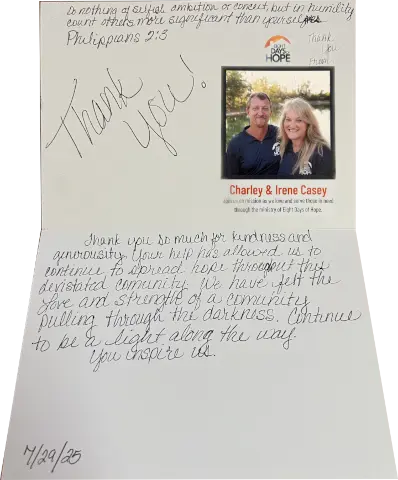 Do nothing of selfish ambition or conceit, but in humility
count others more significant than yourselves
Philippians 2:3
Thank
You!
EIGHT
DAYS OF
HOPE
Thank
you
from
Charley & Irene Casey
mission as we love and serve those in need
through the ministry of Eight Days of Hope.
Thank you so much for kindness and
generousity. Your help has allowed us to
continue to spread hope throughout this
devistated comunity. We have felt the
love and strength of a comunity
pulling through the darkness. Continue
to be a light along the way.
You inspire us.
7/29/25